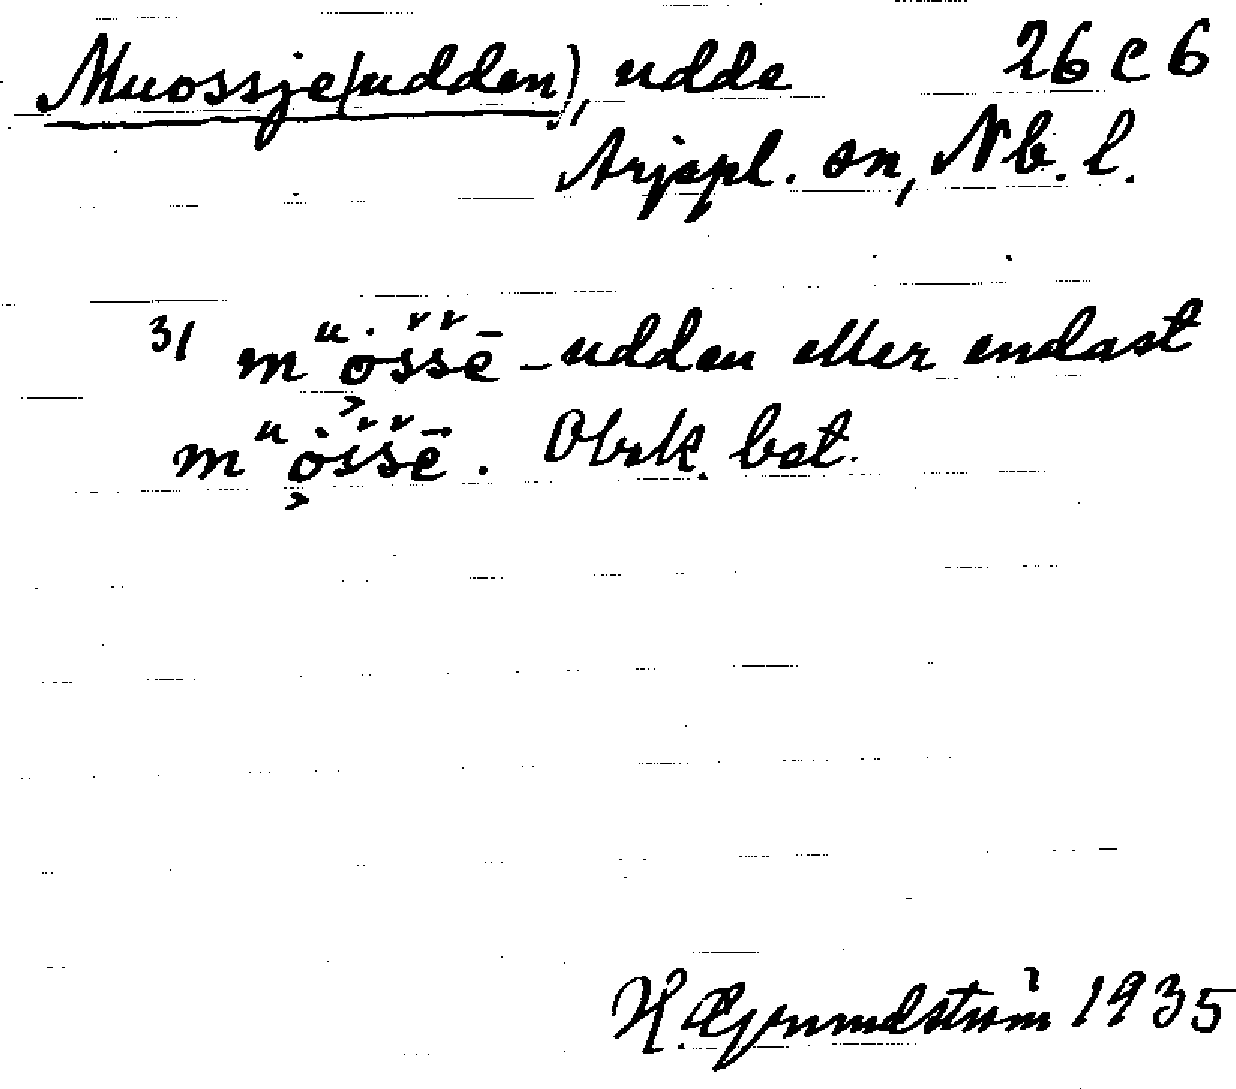 Muossje(udden), udde 26 c 6
Arjepl. sn, Nb. l.
3/ mᵘȯ̭ššē-udden eller endast
mᵘȯ̭ššē. Obek. bet.
H. Grundström 1935